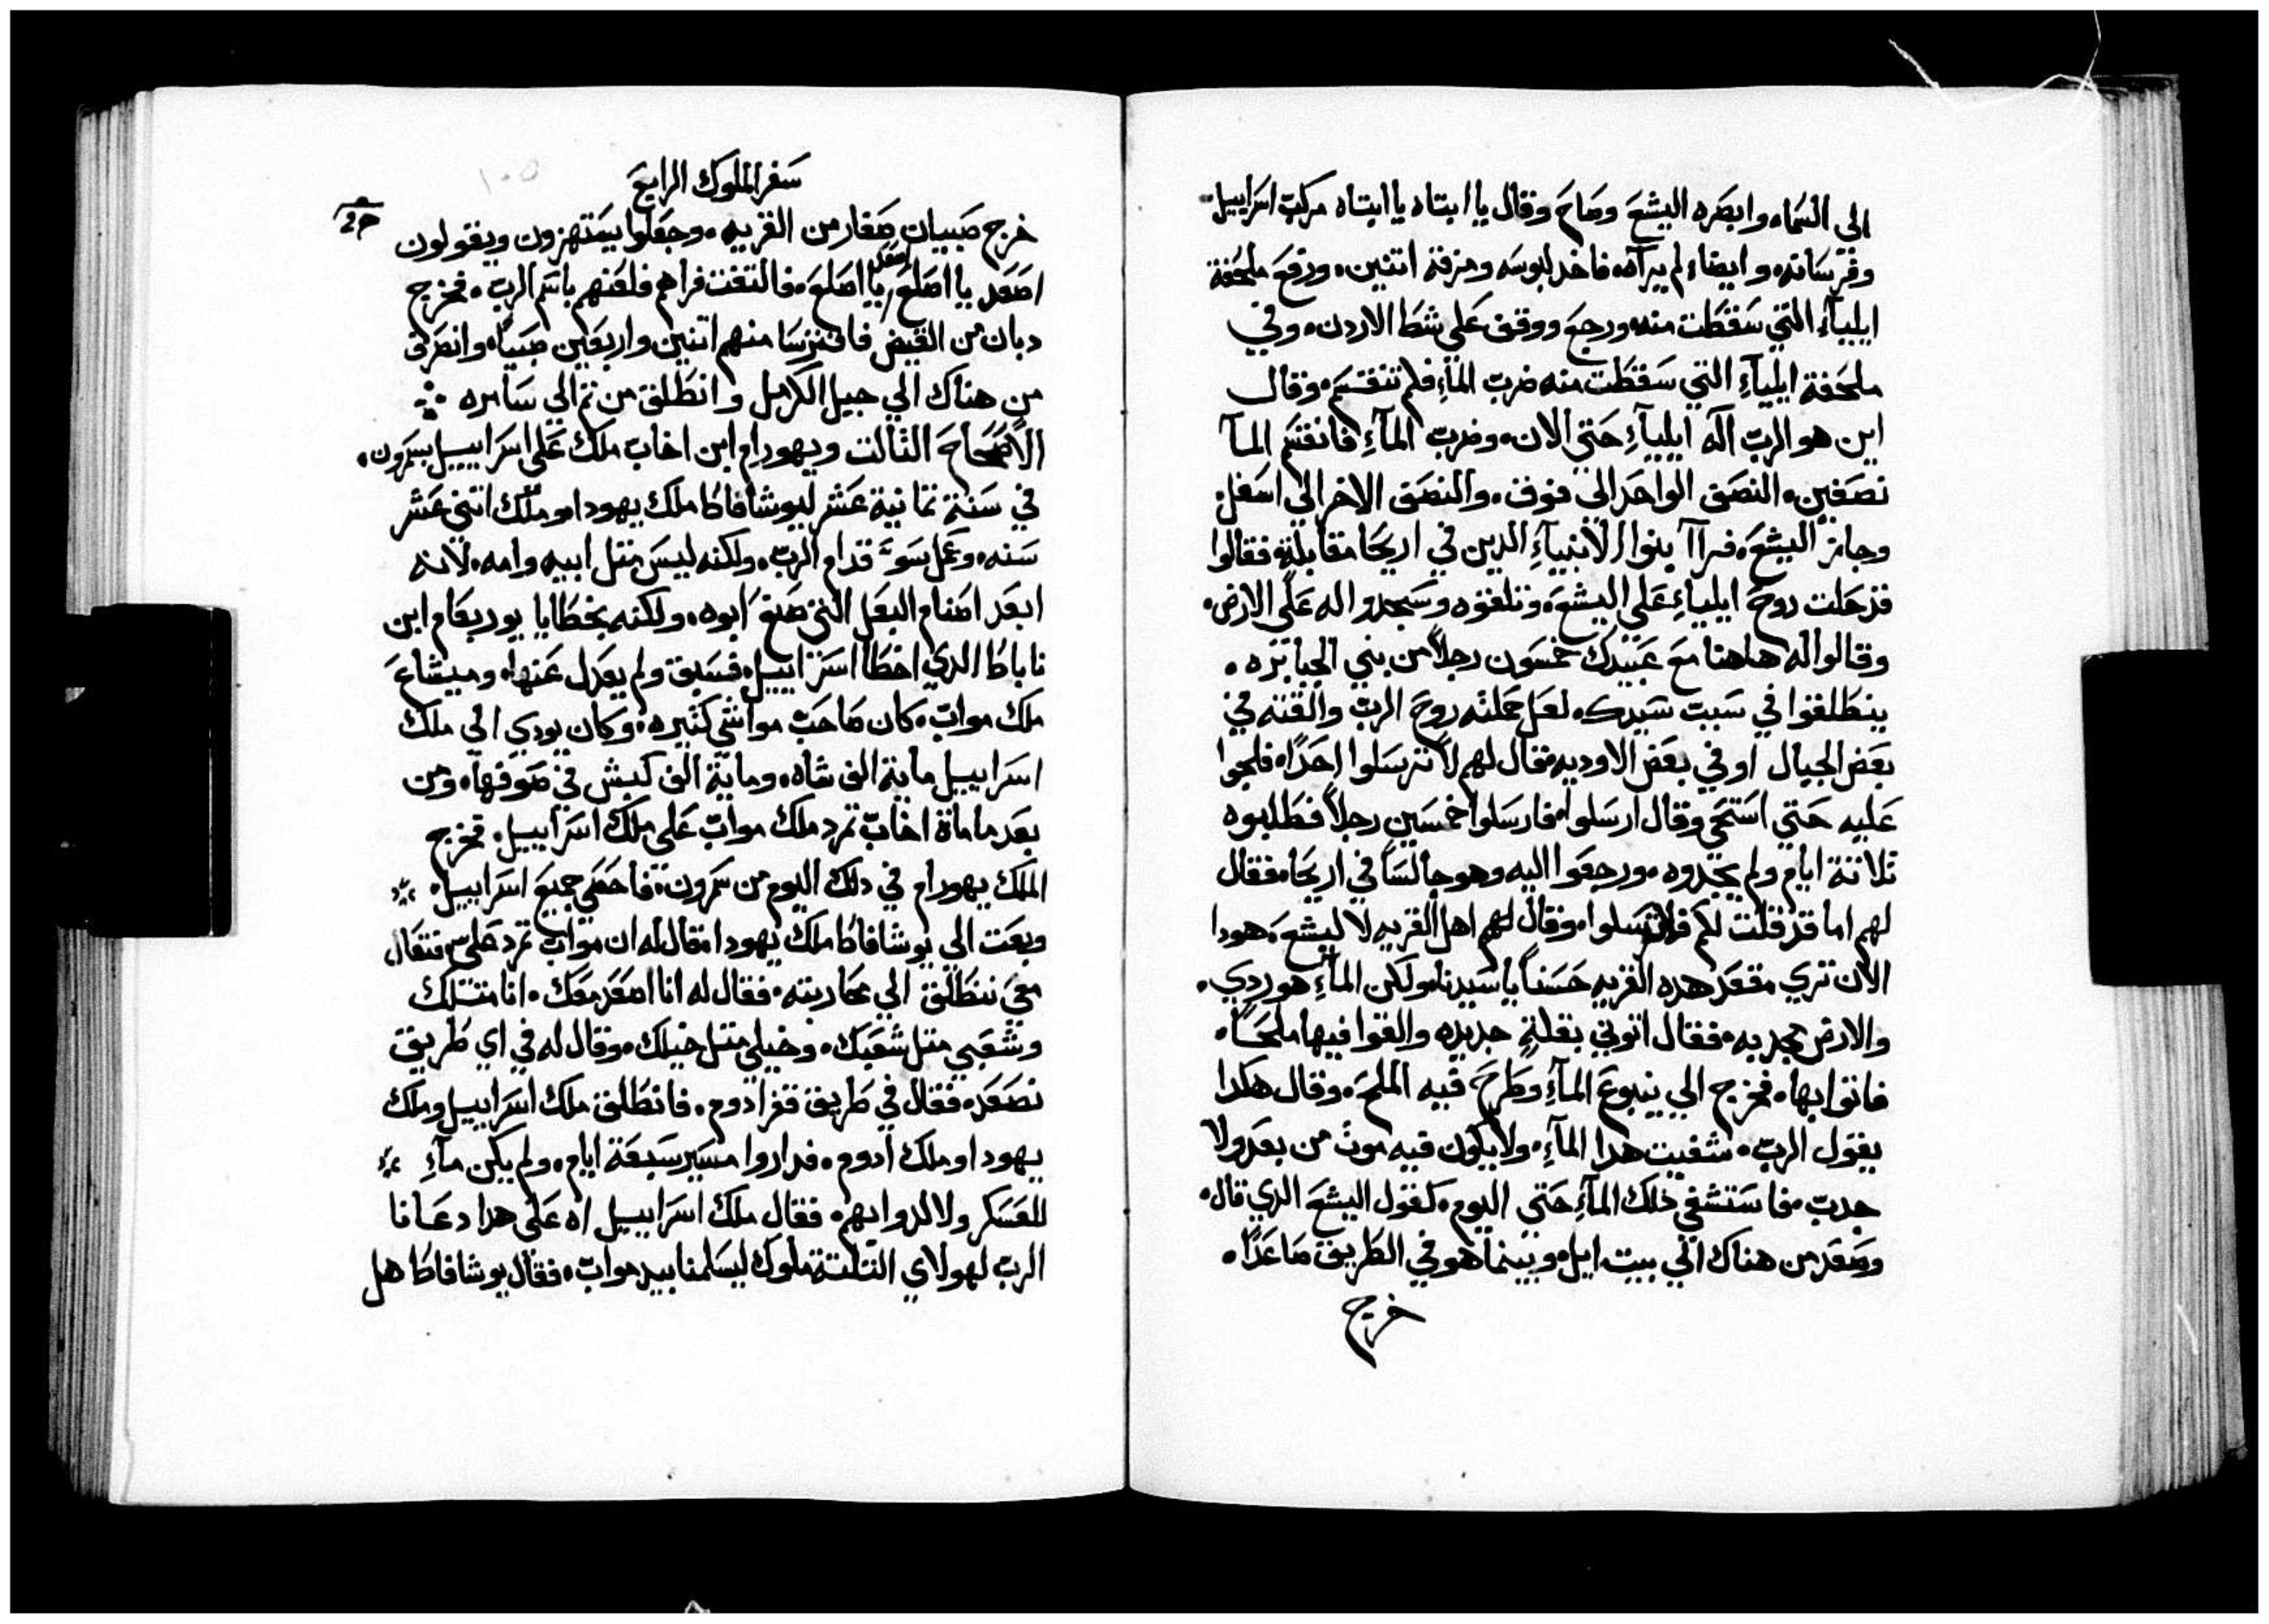 الى السماء وابصره اليشع وصاح وقال يا ابتاه يا ابتاه مركب اسراييل
وفرسانه وايضاء لم يراه فاخد لبوسه ومزقه اتنين ورفع ملحفة
ايلياء التي سقطت منه ورجع ووقف على شط الاردن وفي
ملحفة ايلياء التي سقطت منه ضرب الماء فلم تنقسم وقال
اين هو الرب اله ايلياء حتي الان وضرب الماء فانقسم الما
نصفين النصف الواحد الى فوق والنصف الاخر الى اسفل
وجاز اليشع فراا بنوا الانبياء الدين في اريحا مقابله فقالوا
قد حلت روح ايلياء على اليشع وتلقوه وسجدوا له على الارض
وقالوا له هاهنا مع عبيدك خمسون رجلاً من بني الجبابره
ينطلقوا في سبت سيدك لعل حملته روح الرب والقته في
بعض الجبال او في بعض الاوديه فقال لهم لا ترسلوا احداً فلجوا
عليه حتي استحي وقال ارسلوا فارسلوا خمسين رجلاً فطلبوه
تلاتة ايام ولم يجدوه ورجعوا اليه وهو جالساً في اريحا فقال
لهم اما قد قلت لكم فلا ترسلوا وقال لهم اهل القريه لاليشع هودا
الان تري مقعد هده القريه حسناً يا سيدنا ولكن الماء هو ردي
والارض مجدبه فقال اتوني بقلة جديده والقوا فيها ملحاً
فاتوا بها فخرج الي ينبوع الماء وطرح فيه الملح وقال هكدا
يقول الرب شفيت هدا الماء ولا يكون فيه موت من بعد ولا
جدب فاستشفي ذلك الماء حتى اليوم كقول اليشع الدي قال
وصعد من هناك الي بيت ايل وبينما هو في الطريق صاعداً
خرج
سفر الملوك الرابع
خرج صبيان صغار من القريه وجعلوا يستهزون ويقولون
اصعد يا اصلع اصعد يا اصلع فالتفت فراهم فلعنهم باسم الرب فخرج
دبان من الغيض فافترسا منهم اتنين واربعين صبياً وانصرف
من هناك الي جبل الكرمل وانطلق من تم الي سامره
الاصحاح التالت ويهورام ابن اخاب ملك على اسراييل بسمرون
في سنة تمانية عشر ليوشافاط ملك يهودا وملك اتني عشر
سنه وعمل سوء قدام الرب ولكنه ليس متل ابيه وامه لانه
ابعد اصنام البعل التي صنع ابوه ولكنه بخطايا يوربعام ابن
ناباط الدي اخطا اسراييل فسبق ولم يعدل عنها وميشاع
ملك مواب كان صاحب مواشي كتيره وكان يودي الي ملك
اسراييل ماية الف شاه وماية الف كبش في صوفها ومن
بعد ما ماة اخاب تمرد ملك مواب على ملك اسراييل فخرج
الملك يهورام في دلك اليوم من سمرون فاحصي جميع اسراييل
وبعت الي يوشافاط ملك يهودا فقال له ان مواب تمرد على فتعال
معي ننطلق الي محاربته فقال له انا اصعد معك انا متلك
وشعبي متل شعبك وخيلي متل خيلك وقال له في اي طريق
نصعد فقال في طريق قفر ادوم فانطلق ملك اسراييل وملك
يهودا وملك ادوم فداروا مسير سبعة ايام ولم يكن ماء
للعسكر ولا لدوابهم فقال ملك اسراييل اه على هدا دعانا
الرب لهولاي التلتة ملوك ليسلمنا بيد مواب فقال يوشافاط هل